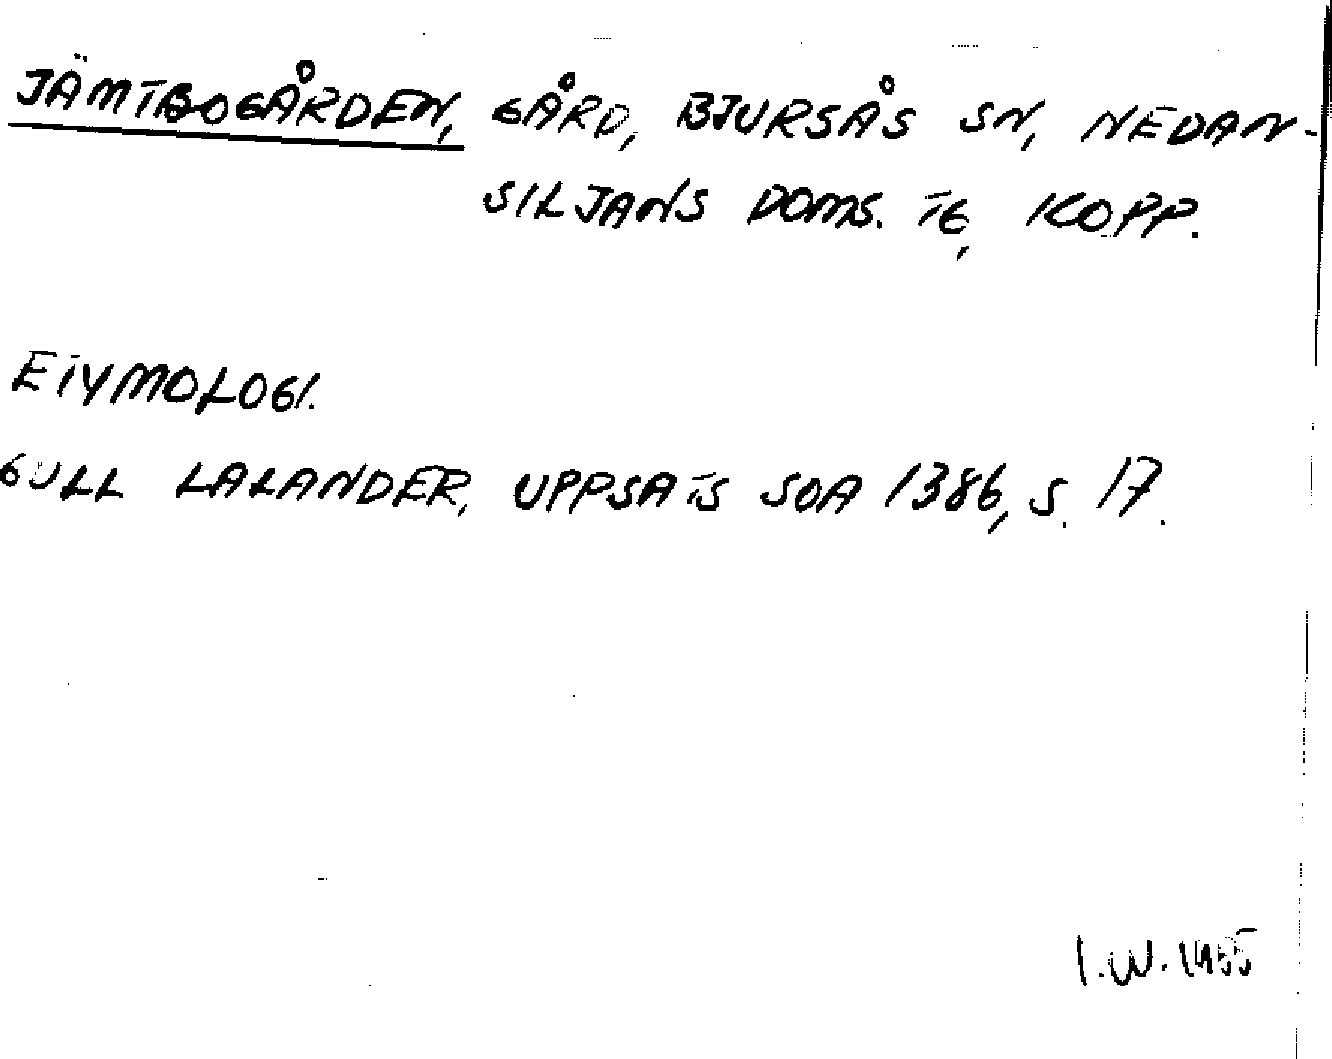 JÄMTBOGÅRDEN, GÅRD, BJURSÅS SN, NEDAN-
SILJANS DOMS. TG, KOPP.
ETYMOLOGI.
GULL LALANDER, UPPSATS SOA 1386, S. 17.
I.W. 1985